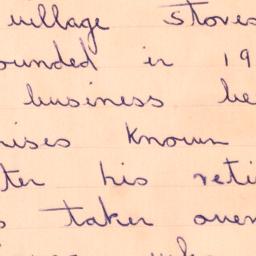 village stores
ounded in 19
business be
ises known
ter his reti
s taken over